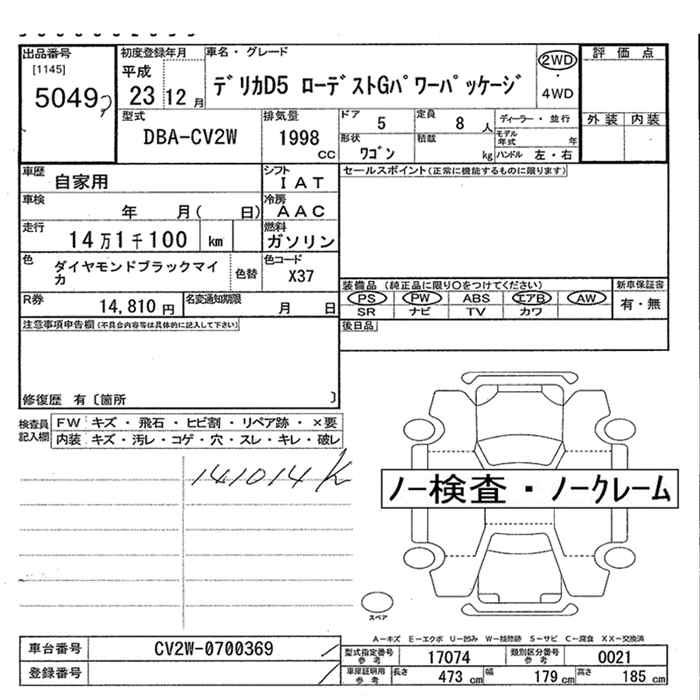 出品番号
[1145]
5049
初度登録年月
平成
23 12 月
車名・グレード
デリカD5 ローデストGパワーパッケージ
2WD
・
4WD
評 価 点
外 装 内 装
型式
DBA-CV2W
排気量
1998
CC
ドア
5
定員
8 人
形状
ワゴン
積載
kg
ディーラー・並行
モデル年式 年
ハンドル 左・右
車歴
自家用
シフト
I A T
車検
年 月( 日)
冷房
A A C
走行
14 万 1 千 100 km
燃料
ガソリン
色
ダイヤモンドブラックマイカ
色替
色コード
X37
R券
14,810 円
名変通知期限
月 日
セールスポイント(正常に機能するものに限ります)
装備品 (純正品に限り〇をつけてください)
PS PW ABS エアB AW
SR ナビ TV カワ
新車保証書
有・無
後日品
注意事項申告欄(不具合内容等は具体的に記入して下さい)
修復歴 有〔箇所 〕
検査員記入欄
FW キズ・飛石・ヒビ割・リペア跡・×要
内装 キズ・汚レ・コゲ・穴・スレ・キレ・破レ
141014K
ノー検査・ノークレーム
スペア
A-キズ E-エクボ U-凹み W-補修跡 S-サビ C-腐食 XX-交換済
車台番号
CV2W-0700369
登録番号
型式指定番号参考
17074
類別区分番号参考
0021
車庫証明用参考
長さ 473 cm 幅 179 cm 高さ 185 cm